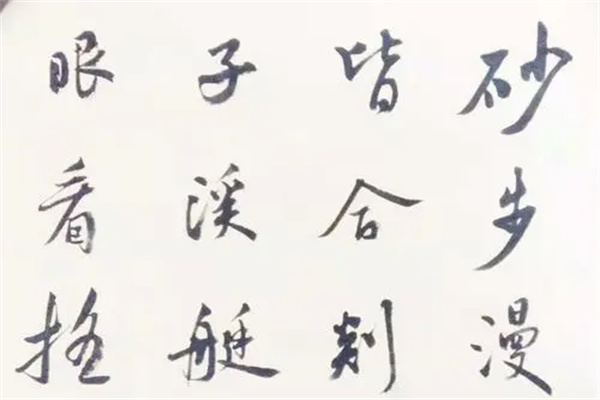 砂步漫
皆合剡
子溪艇
眼看摇